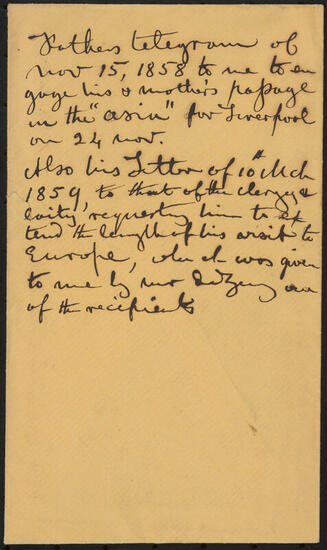 Fathers telegram of
Nov 15, 1858 to me to en
gage his & mother's passage
in the "Asia" for Liverpool
on 24 Nov.
Also his Letter of 10th Mch
1859, to that of the clergy &
laity, requesting him to ex
tend the length of his visit to
Europe, which was given
to me by Mr one
of the recipients